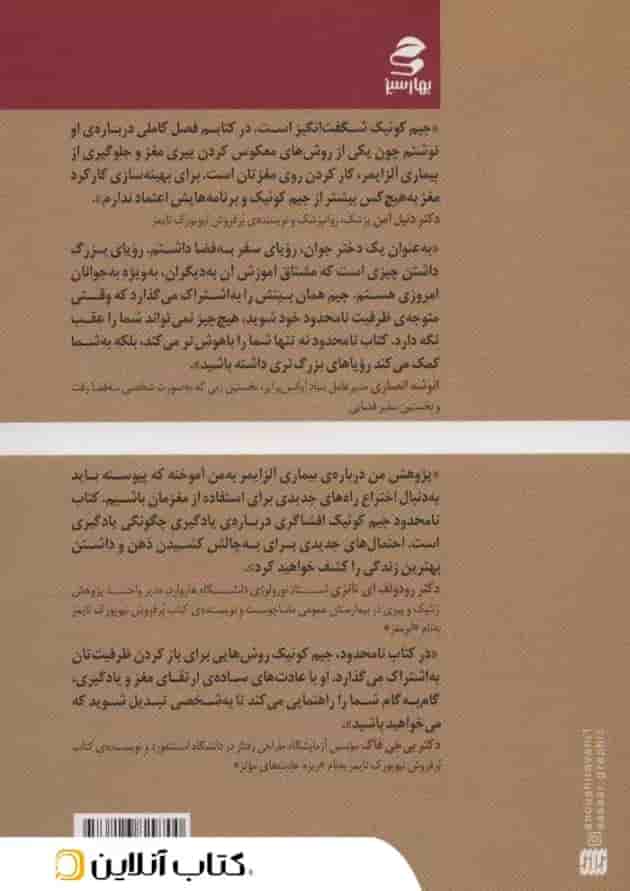 بهار سبز
«جیم کوئیک شگفت‌انگیز است. در کتابم فصل کاملی درباره‌ی او
نوشتم چون یکی از روش‌های معکوس کردن پیری مغز و جلوگیری از
بیماری آلزایمر، کار کردن روی مغزتان است. برای بهینه‌سازی کارکرد
مغز به‌هیچ‌کس بیشتر از جیم کوئیک و برنامه‌هایش اعتماد ندارم».
دکتر دنیل آمن پزشک، روانپزشک و نویسنده‌ی پُرفروش نیویورک تایمز
«به‌عنوان یک دختر جوان، رؤیای سفر به‌فضا داشتم. رؤیای بزرگ
داشتن چیزی است که مشتاق آموزش آن به‌دیگران، به‌ویژه به‌جوانان
امروزی هستم. جیم همان بینش را به‌اشتراک می‌گذارد که وقتی
متوجه‌ی ظرفیت نامحدود خود شوید، هیچ‌چیز نمی‌تواند شما را عقب
نگه دارد. کتاب نامحدود نه تنها شما را باهوش‌تر می‌کند، بلکه به‌شما
کمک می‌کند رؤیاهای بزرگ‌تری داشته باشید».
انوشه انصاری مدیرعامل بنیاد ایکس‌پرایز، نخستین زنی که به‌صورت شخصی به‌فضا رفت
و نخستین سفیر فضایی
«پژوهش من درباره‌ی بیماری آلزایمر به‌من آموخته که پیوسته باید
به‌دنبال اختراع راه‌های جدیدی برای استفاده از مغزمان باشیم. کتاب
نامحدود جیم کوئیک افشاگری درباره‌ی یادگیری چگونگی یادگیری
است. احتمال‌های جدیدی برای به‌چالش کشیدن ذهن و داشتن
بهترین زندگی را کشف خواهید کرد».
دکتر رودولف ای تانزی استاد نورولوژی دانشگاه هاروارد، مدیر واحد پژوهش
ژنتیک و پیری در بیمارستان عمومی ماساچوست و نویسنده‌ی کتاب پُرفروش نیویورک تایمز
به‌نام «ابرمغز»
«در کتاب نامحدود، جیم کوئیک روش‌هایی برای باز کردن ظرفیت‌تان
به‌اشتراک می‌گذارد. او با عادت‌های ساده‌ی ارتقای مغز و یادگیری،
گام‌به‌گام شما را راهنمایی می‌کند تا به‌شخصی تبدیل شوید که
می‌خواهید باشید».
دکتر بی جی فاگ مؤسس آزمایشگاه طراحی رفتار در دانشگاه استنفورد و نویسنده‌ی کتاب
پُرفروش نیویورک تایمز به‌نام «ریزه عادت‌های مؤثر»
کتاب آنلاین